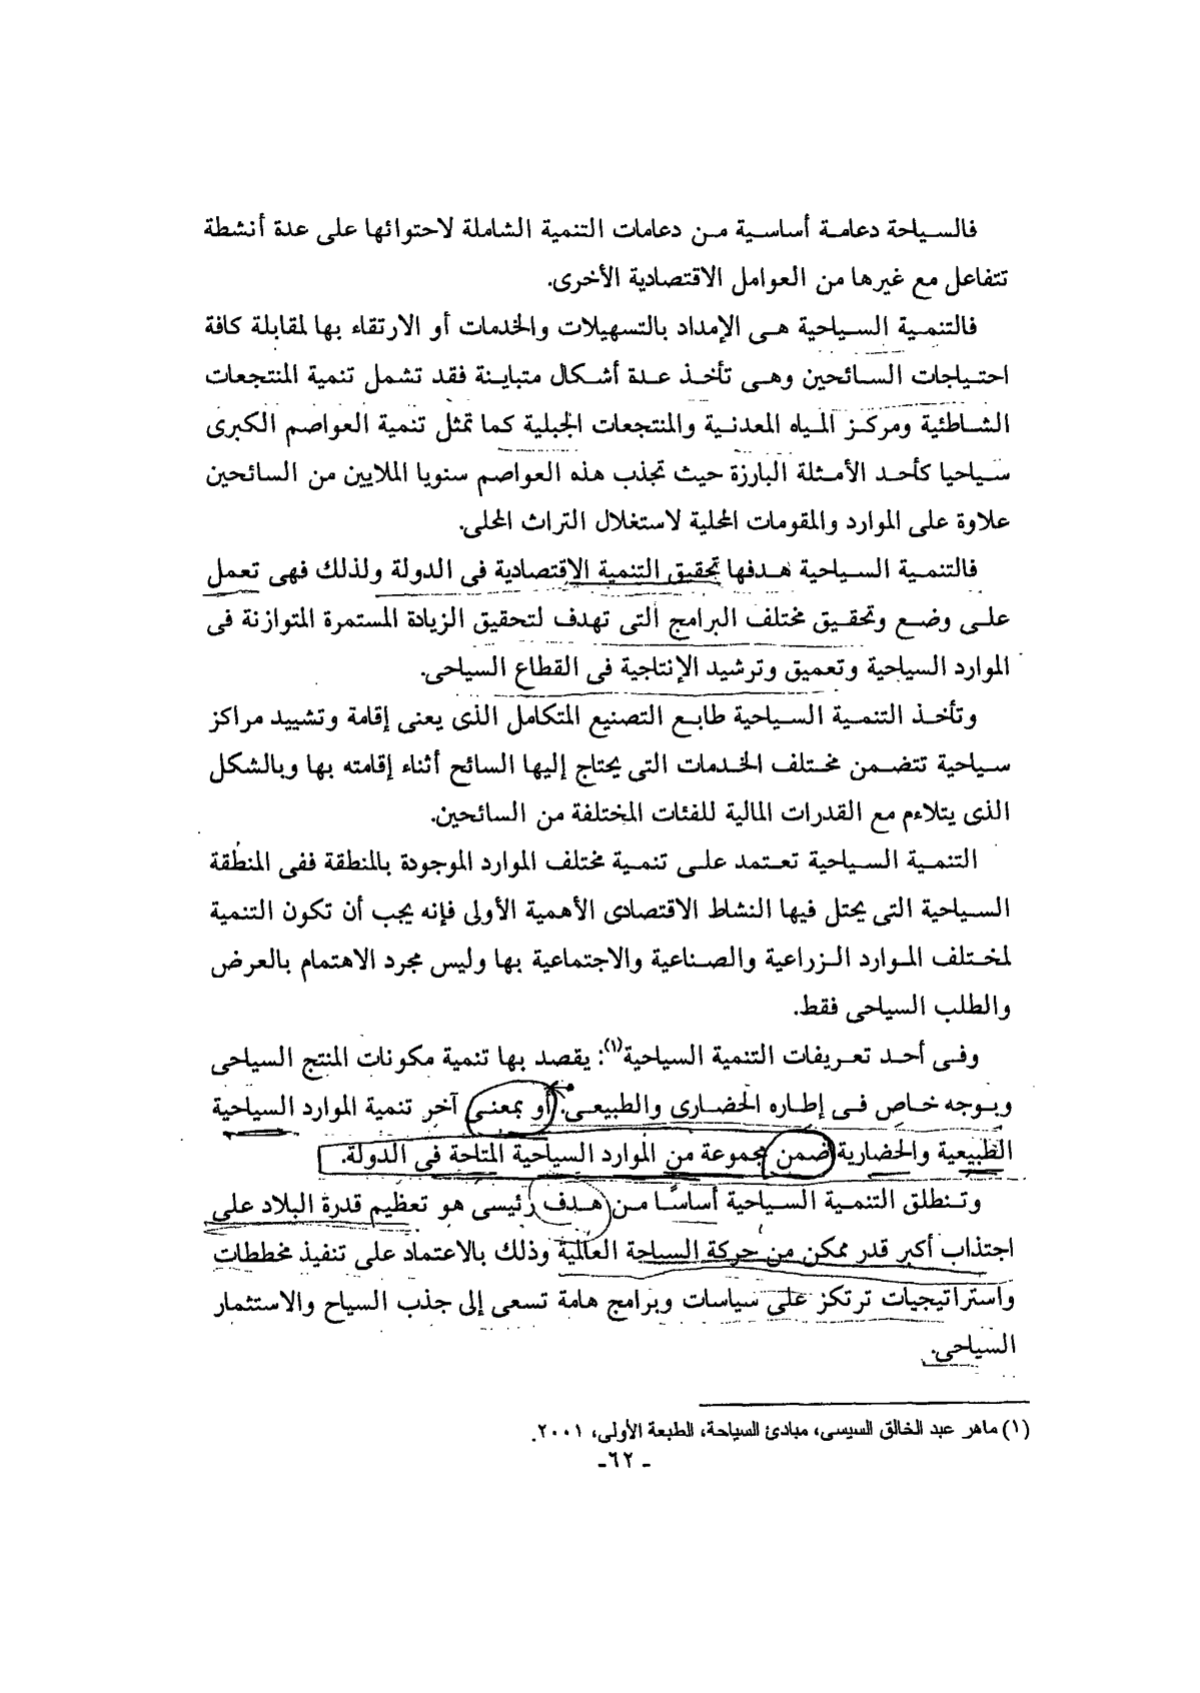 فالسياحة دعامة أساسية من دعامات التنمية الشاملة لاحتوائها على عدة أنشطة
تتفاعل مع غيرها من العوامل الاقتصادية الأخرى.
فالتنمية السياحية هى الإمداد بالتسهيلات والخدمات أو الارتقاء بها لمقابلة كافة
احتياجات السائحين وهى تأخذ عدة أشكال متباينة فقد تشمل تنمية المنتجعات
الشاطئية ومركز المياه المعدنية والمنتجعات الجبلية كما تمثل تنمية العواصم الكبرى
سياحيا كأحد الأمثلة البارزة حيث تجذب هذه العواصم سنويا الملايين من السائحين
علاوة على الموارد والمقومات المحلية لاستغلال التراث المحلى.
فالتنمية السياحية هدفها تحقيق التنمية الاقتصادية فى الدولة ولذلك فهى تعمل
على وضع وتحقيق مختلف البرامج التى تهدف لتحقيق الزيادة المستمرة المتوازنة فى
الموارد السياحية وتعميق وترشيد الإنتاجية فى القطاع السياحى.
وتأخذ التنمية السياحية طابع التصنيع المتكامل الذى يعنى إقامة وتشييد مراكز
سياحية تتضمن مختلف الخدمات التى يحتاج إليها السائح أثناء إقامته بها وبالشكل
الذى يتلاءم مع القدرات المالية للفئات المختلفة من السائحين.
التنمية السياحية تعتمد على تنمية مختلف الموارد الموجودة بالمنطقة ففى المنطقة
السياحية التى يحتل فيها النشاط الاقتصادى الأهمية الأولى فإنه يجب أن تكون التنمية
لمختلف الموارد الزراعية والصناعية والاجتماعية بها وليس مجرد الاهتمام بالعرض
والطلب السياحى فقط.
وفى أحد تعريفات التنمية السياحية(١): يقصد بها تنمية مكونات المنتج السياحى
وبوجه خاص فى إطاره الحضارى والطبيعى. أو بمعنى آخر تنمية الموارد السياحية
الطبيعية والحضارية ضمن مجموعة من الموارد السياحية المتاحة فى الدولة.
وتنطلق التنمية السياحية أساسًا من هدف رئيسى هو تعظيم قدرة البلاد على
اجتذاب أكبر قدر ممكن من حركة السياحة العالمية وذلك بالاعتماد على تنفيذ مخططات
واستراتيجيات ترتكز على سياسات وبرامج هامة تسعى إلى جذب السياح والاستثمار
السياحى.
(١) ماهر عبد الخالق السيسى، مبادئ السياحة، الطبعة الأولى، ٢٠٠١.
- ٦٢-